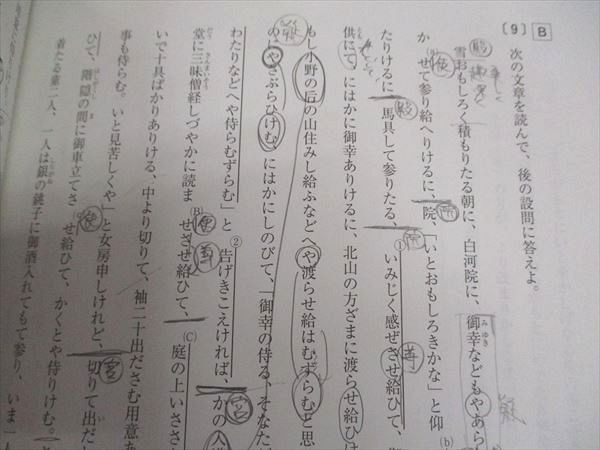 〔9〕 B 次の文章を読んで、後の設問に答えよ。
雪おもしろく積もりたる朝に、白河院に、御幸などもやあら
せて参り給へりけるに、院、「いとおもしろきかな」と仰
たりけるに、馬具して参りたる、①いみじく感ぜさせ給ひて、
供にて、にはかに御幸ありけるに、北山の方ざまに渡らせ給ひ
もし小野の后の山住みし給ふなどへや渡らせ給はむずらむと思
やさぶらひけむ、にはかにしのびて、「御幸の侍る、そなた
わたりなどへや侍らむずらむ」と②告げきこえければ、かの入
堂に三昧僧経しづやかに読ま(B)せさせ給ひて、(C)庭の上いささ
いで十具ばかりありける、中より切りて、袖二十出ださむ用意
事も侍らむ。いと見苦しくや」と女房申しけれど、切りて出だし
ひて、階隠の間に御車立てさせ給ひて、かくとや侍りけむ。
着たる童二人、一人は銀の銚子に御酒入れてもて参り、いま一